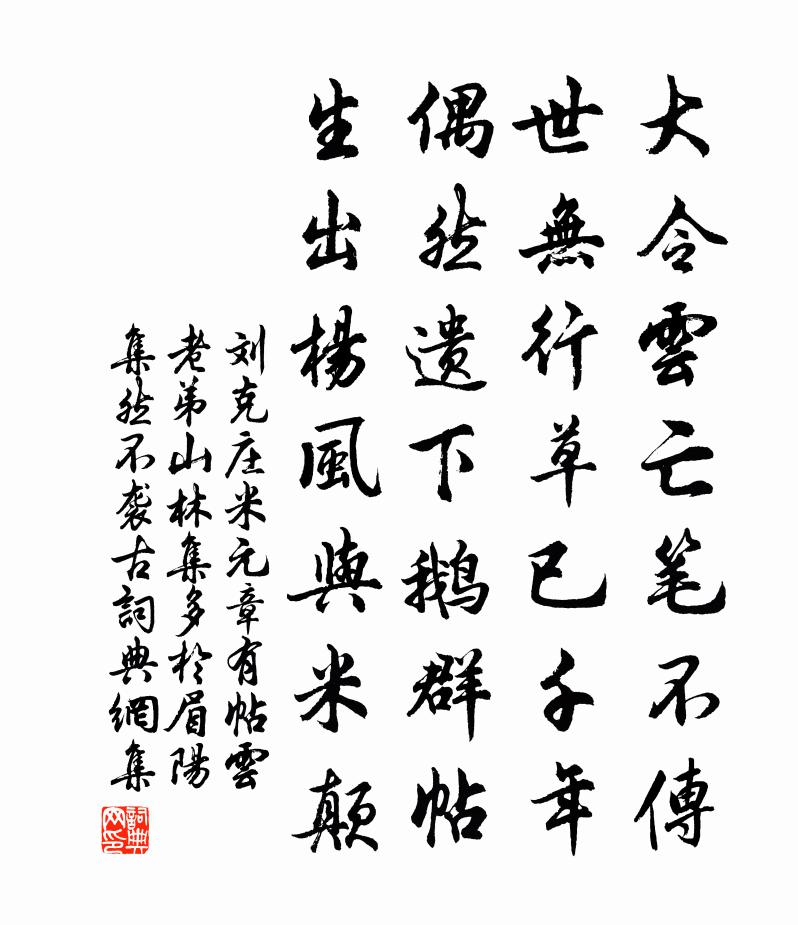 大令雲亡笔不傳
世無行草已千年
偶然遗下鵝群帖
生出楊風與米颠
刘克庄米元章有帖雲
老弟山林集多於眉陽
集然不袭古詞典網集
詞典
网印